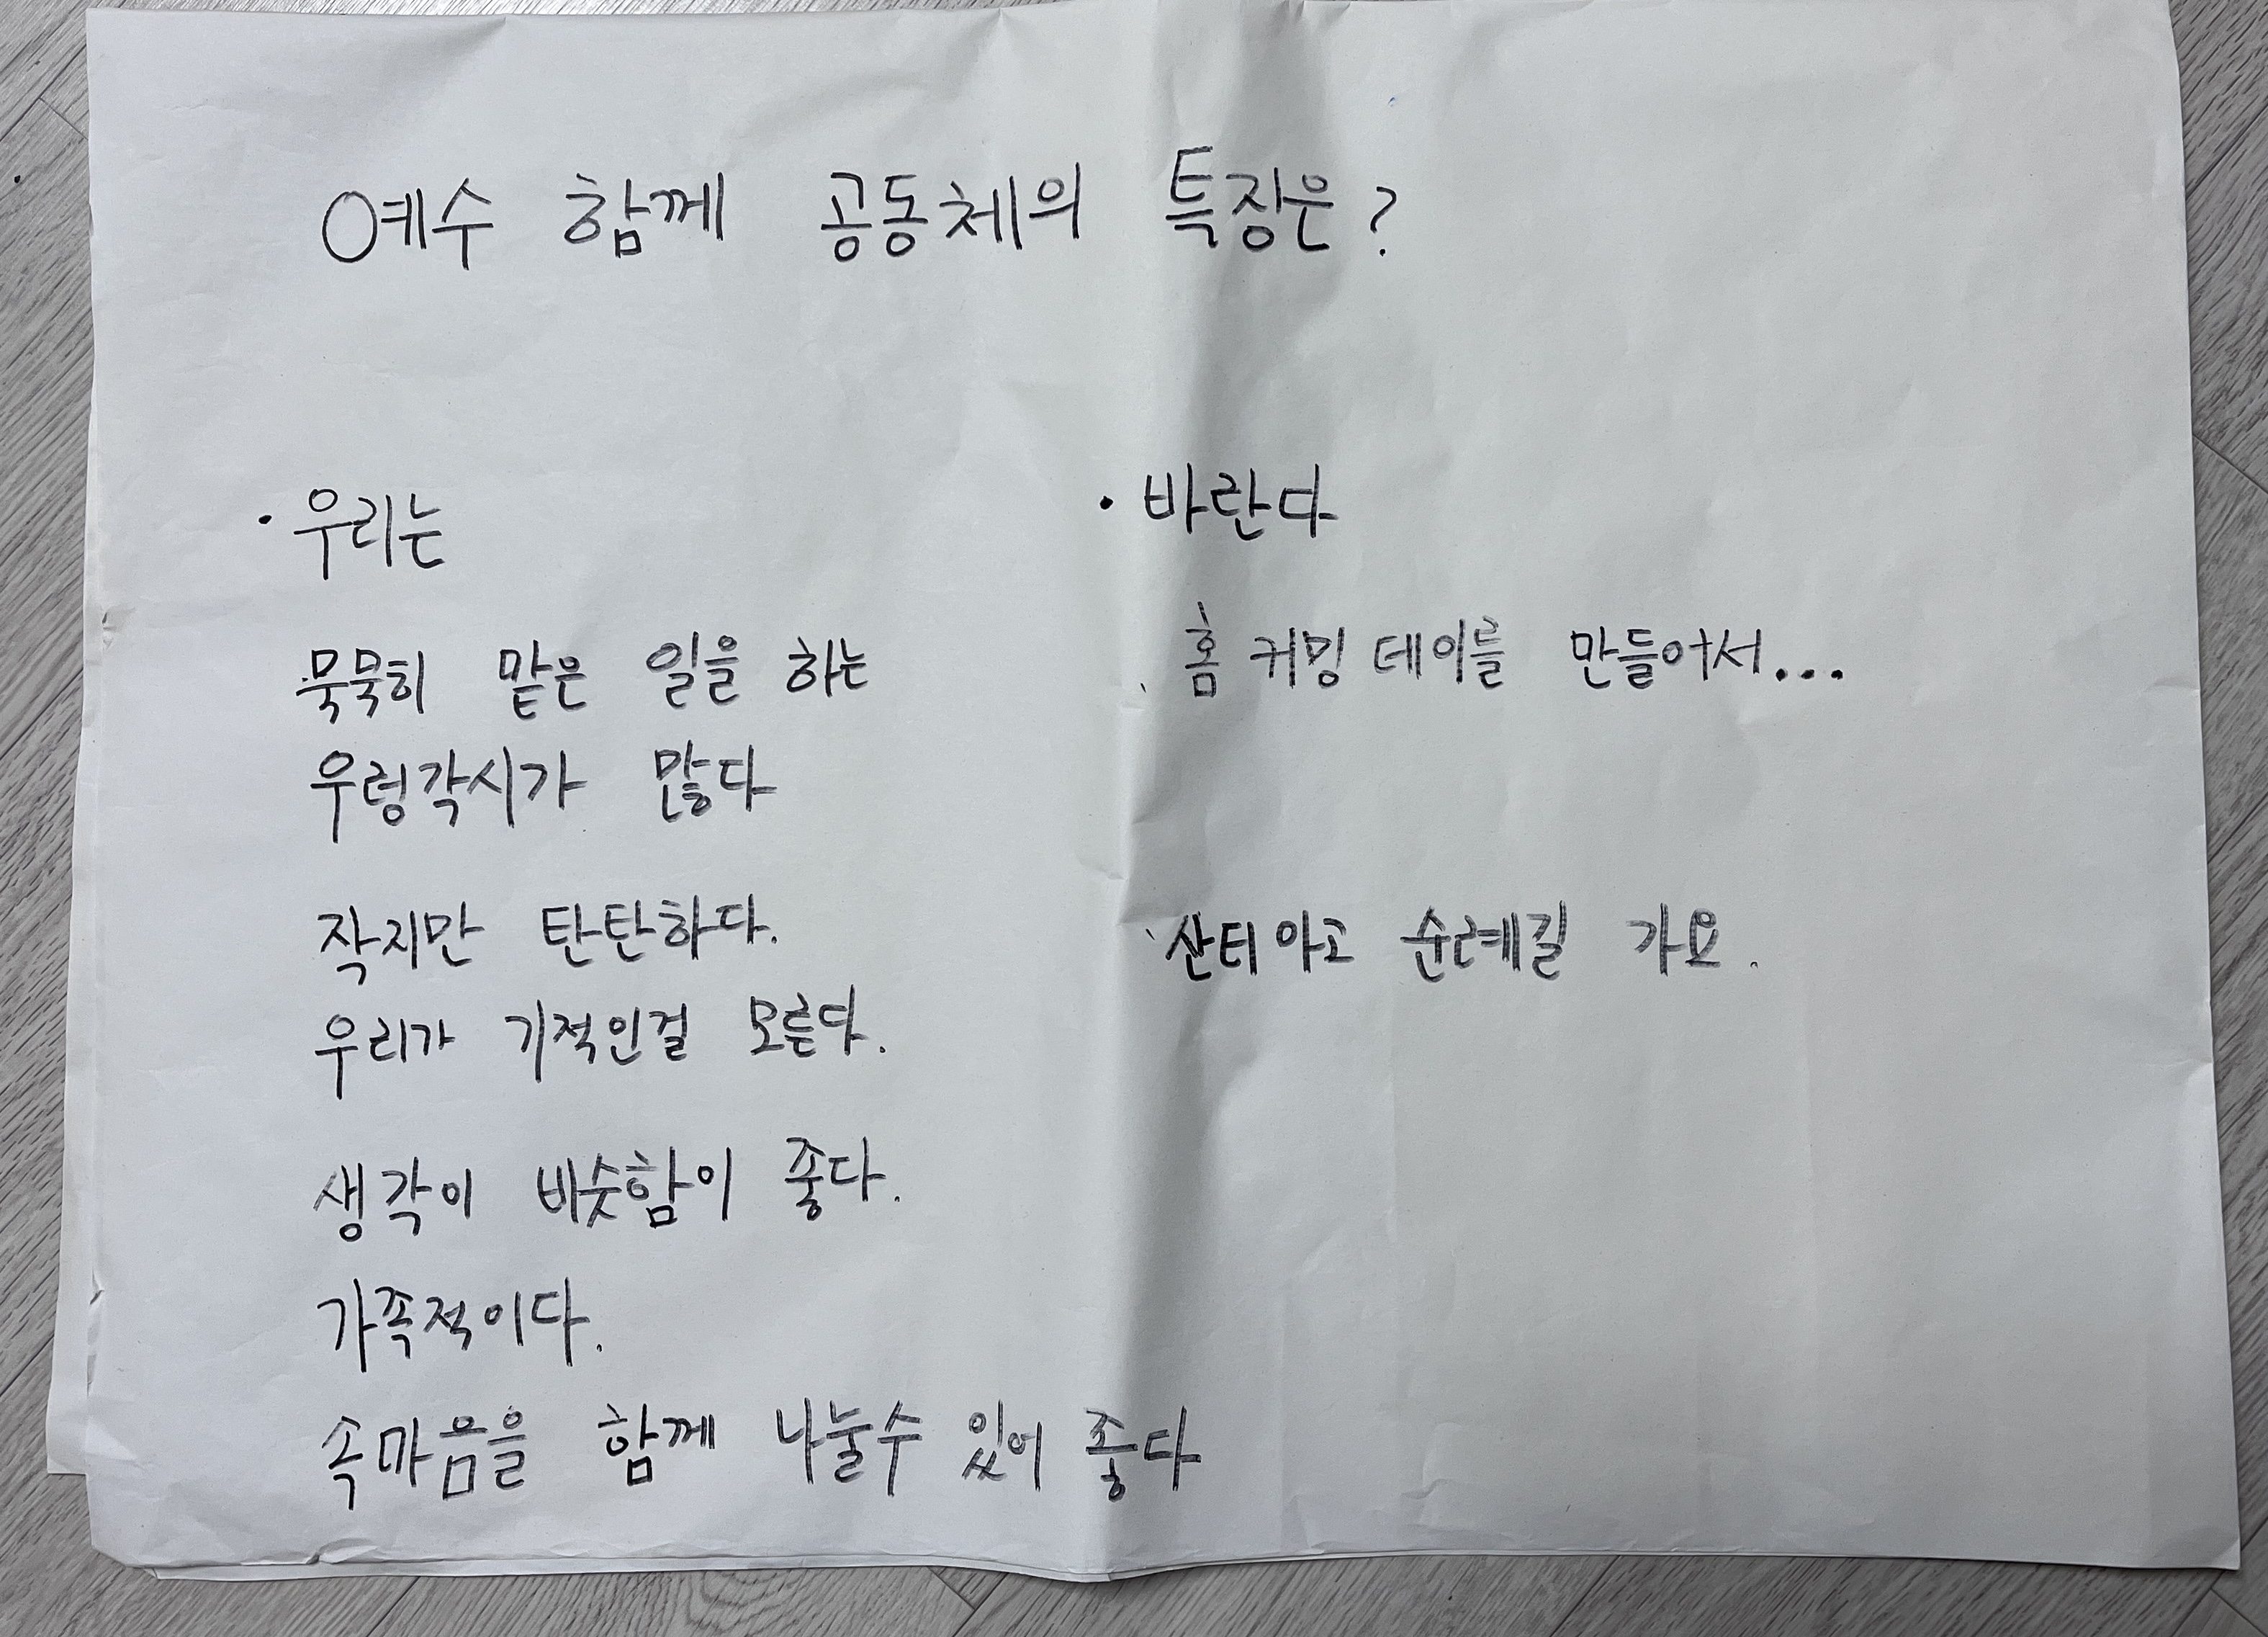 예수 함께 공동체의 특장은?
· 우리는
묵묵히 맡은 일을 하는
우렁각시가 많다
작지만 탄탄하다.
우리가 기적인걸 모른다.
생각이 비슷함이 좋다.
가족적이다.
속마음을 함께 나눌수 있어 좋다
· 바란다
홈 커밍 데이를 만들어서...
산티아고 순례길 가요.